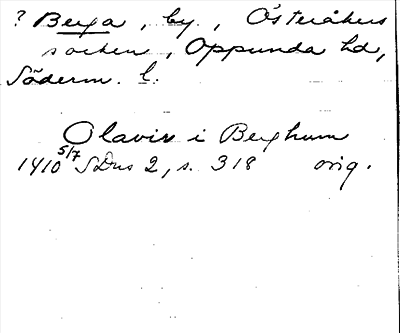 ? Berga, by, Österåkers
socken, Oppunda hd,
Söderm. l.
Olavir i Berghum
1410 5/7 SDns 2, s. 318 orig.